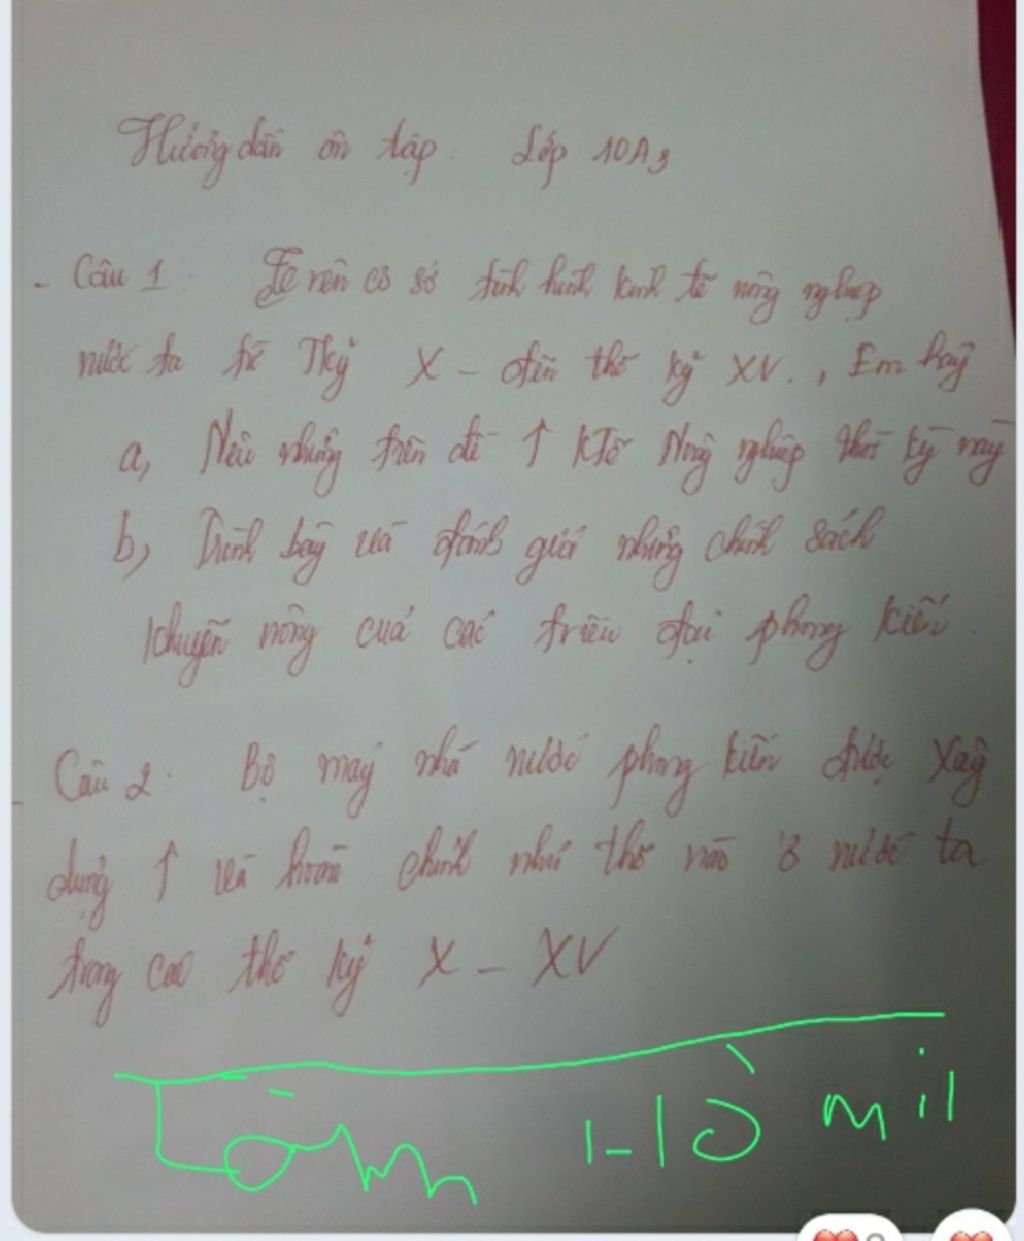 Hướng dẫn ôn tập: Lớp 10A3
- Câu 1: Trên cơ sở tình hình kinh tế nông nghiệp
nước ta từ Tkỷ X - đến thế kỷ XV., Em hãy
a, Nêu những ↑ KTế Nông nghiệp thời kỳ này
b, Trình bày và đánh giá những chính sách
khuyến nông của các triều đại phong kiến.
- Câu 2: Bộ máy nhà nước phong kiến được xây
dựng ↑ và hoàn chỉnh như thế nào ở nước ta
trong các thế kỷ X - XV